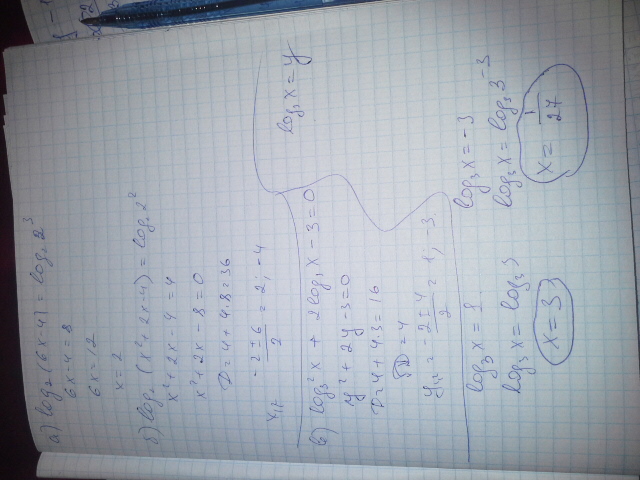 а) log₂(6x-4) = log₂ 2³
6x-4=8
6x=12
x=2
б) log₂(x²+2x-4) = log₂2²
x²+2x-4=4
x²+2x-8=0
D=4+4·8=36
x₁,₂ = (-2±6)/2 = 2; -4
в) log₃²x + 2log₃x - 3=0
log₃x=y
y²+2y-3=0
D=4+4·3=16
√D=4
y₁,₂ = (-2±4)/2 = 1; -3
log₃x=1
log₃x=log₃3
x=3
log₃x=-3
log₃x=log₃3⁻³
x=1/27